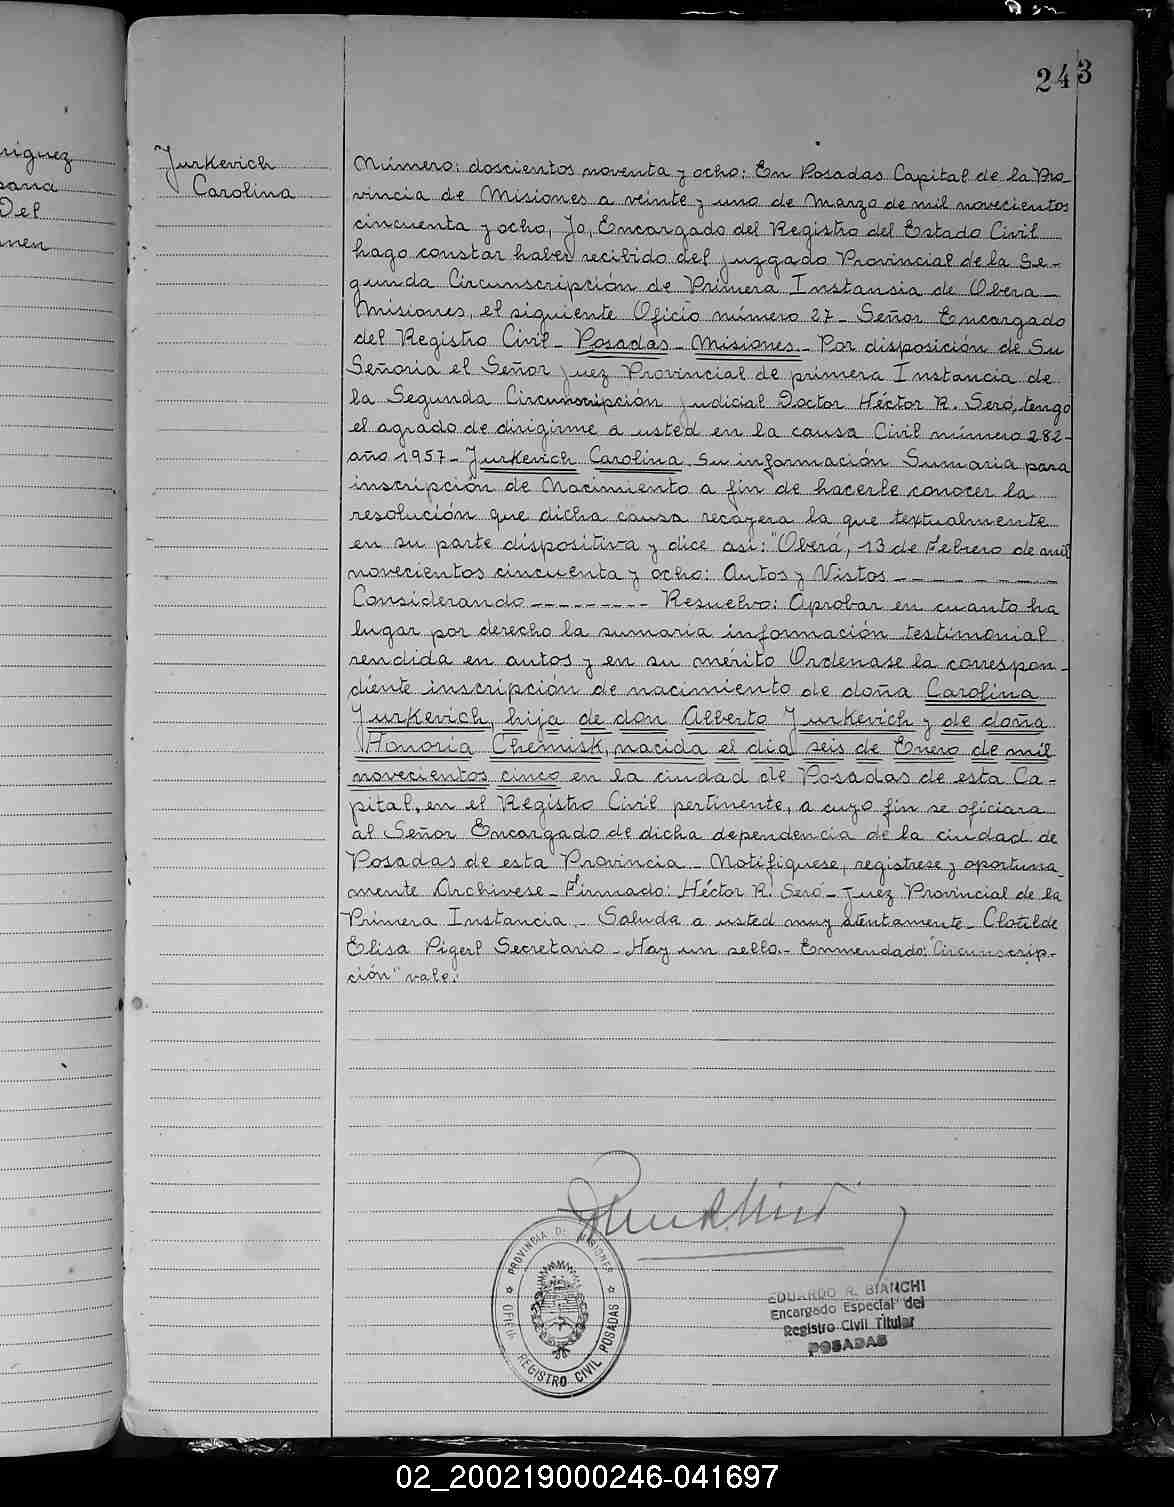 243
niguez
Del
Jurkevich
Carolina
Número: doscientos noventa y ocho: En Posadas Capital de la Pro-
vincia de Misiones a veinte y uno de Marzo de mil novecientos
cincuenta y ocho, Yo, Encargado del Registro del Estado Civil
hago constar haber recibido del juzgado Provincial de la Se-
gunda Circunscripción de Primera Instansia de Obera-
Misiones, el siguiente Oficio número 27- Señor Encargado
del Registro Civil- Posadas- Misiones- Por disposición de Su
Señoria el Señor juez Provincial de primera Instancia de
la Segunda Circunscripción judicial Doctor Héctor R. Seró, tengo
el agrado de dirigirme a usted en la causa Civil número 282-
año 1957- Jurkevich Carolina, su información Sumaria para
inscripción de Nacimiento a fin de hacerle conocer la
resolución que dicha causa recayera la que textualmente
en su parte dispositiva y dice asi: "Oberá, 13 de Febrero de mil
novecientos cincuenta y ocho: Autos y Vistos- - - - - - -
Considerando- - - - - - - - Resuelvo: Aprobar en cuanto ha
lugar por derecho la sumaria información testimonial
rendida en autos y en su mérito Ordenase la correspon-
diente inscripción de nacimiento de doña Carolina
Jurkevich, hija de don Alberto Jurkevich y de doña
Honoria Chemisk, nacida el dia seis de Enero de mil
novecientos cinco en la ciudad de Posadas de esta Ca-
pital, en el Registro Civil pertinente, a cuyo fin se oficiara
al Señor Encargado de dicha dependencia de la ciudad de
Posadas de esta Provincia- Notifiquese, registrese y oportuna-
mente Archivese- Firmado: Héctor R. Seró- Juez Provincial de la
Primera Instancia- Saluda a usted muy atentamente- Clotilde
Elisa Pigerl Secretario- Hay un sello.- Enmendado: "Circunscrip-
ción" vale.
PROVINCIA DE MISIONES
REGISTRO CIVIL POSADAS
EDUARDO R. BIANCHI
Encargado Especial del
Registro Civil Titular
POSADAS
02_200219000246-041697